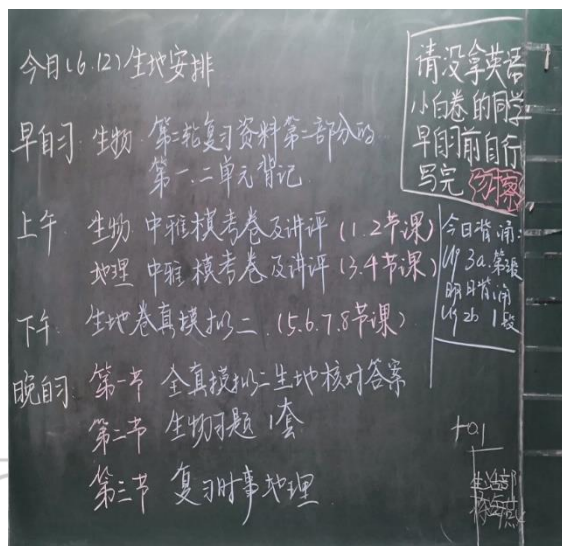 今日(6.12)生地安排
早自习 生物 第二轮复习资料第二部分的
第一.二单元背记
上午 生物 中雅模考卷及讲评 (1.2节课)
地理 中雅模考卷及讲评 (3.4节课)
下午 生地卷真模拟二 (5.6.7.8节课)
晚自习 第一节 全真模拟二生地核对答案
第二节 生物习题1套
第三节 复习时事地理
请没拿英语
小白卷的同学
早自习前自行
写完 勿擦
今日背诵:
U9 3a 第段
明日背诵
U9 2b 1段
+0.1